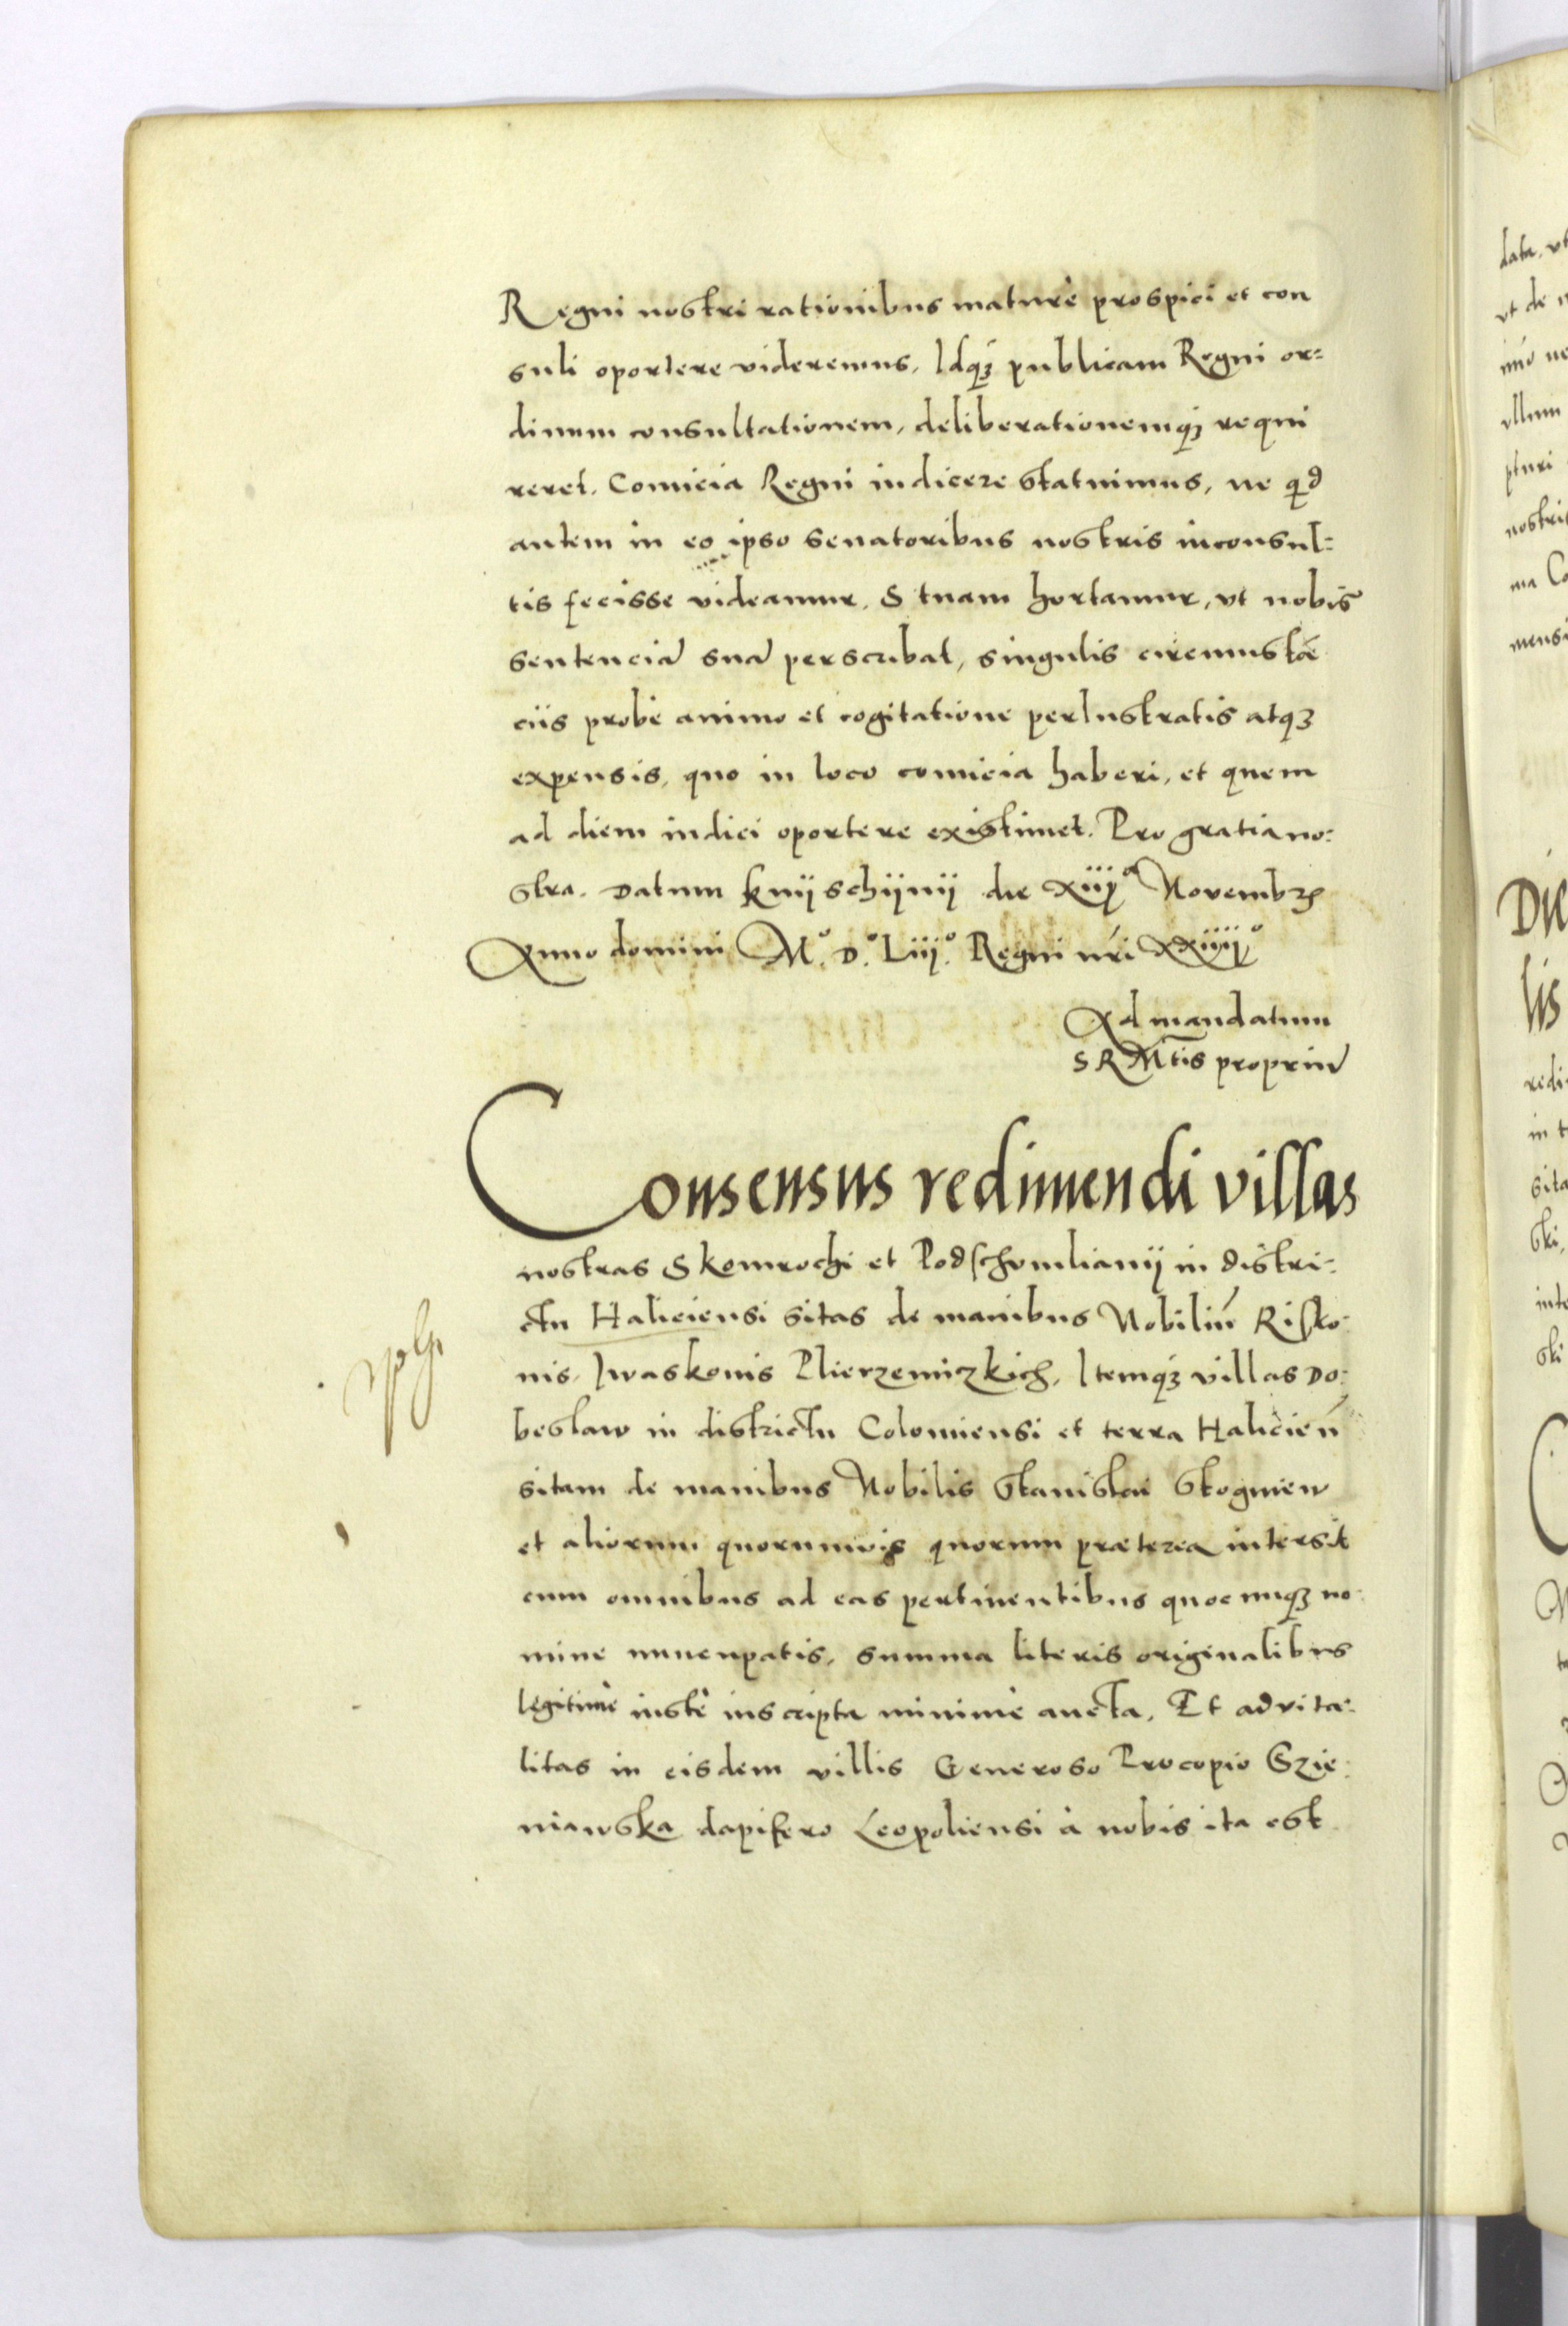 Regni nostri rationibus maturè prospici et con
suli oportere videremus, Idq̃ʒ publicam Regni or=
dinum consultationem, deliberationemq̃ʒ requi
reret. Comicia Regni indicere statuimus, ne qd
autem in eo ipso senatoribus nostris inconsul=
tis fecisse videamur. S tuam hortamur, vt nobis
sentenciã suã perscribat, singulis circumstã
ciis probè animo et cogitatione perlustratis atqʒ
expensis, quo in loco comicia haberi, et quem
ad diem indici oportere existimet. Pro gratia no=
stra. Datum knÿschÿnÿ die xiijª Novembrꝭ
Anno domini Mº. Dº. Liijº. Regni nr̃i xxiiijº
Ad mandatum
S R Mt̃is propriũ
Consensus redimendi villas
nostras Skomrochi et Podschvmlianÿ in distri=
ctu Haliciensi sitas de manibus Nobiliũ Risko=
nis, Iwaskonis Plierzemiczkich, Itemq̃ʒ villas Do=
beslaw in districtu Colomiensi et terra Halicieñ
sitam de manibus Nobilis Stanislai Stogniew
et aliorum quorumvis quorum præterea intersit
cum omnibus ad eas pertinentibus quocumqʒ no=
mine nuncupatis, summa literis originalibus
legitimè iustè inscripta minimè aucta. Et advita=
litas in eisdem villis Generoso Procopio Szie=
niawska dapifero Leopoliensi à nobis ita est